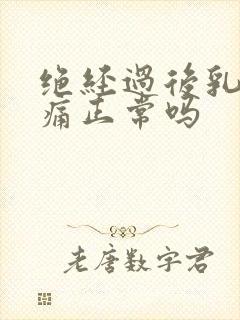 绝经過後乳
痛正常吗
老唐数字君